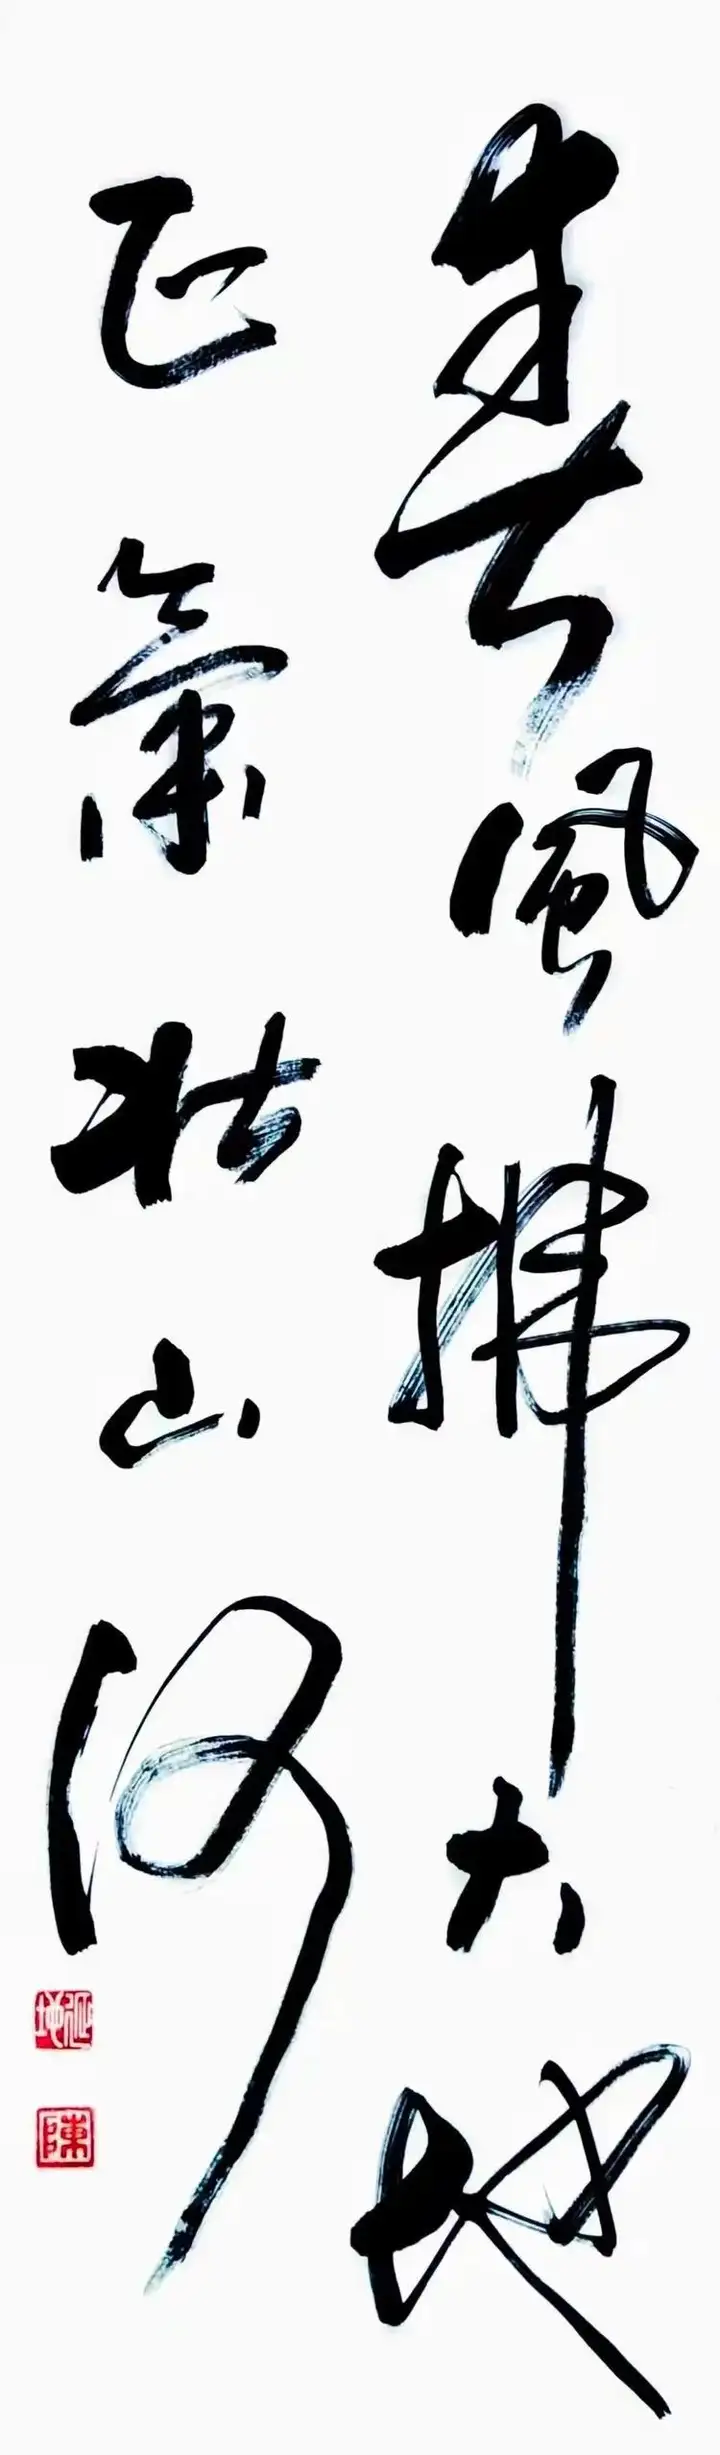 春風拂大地
正氣壯山河
陳